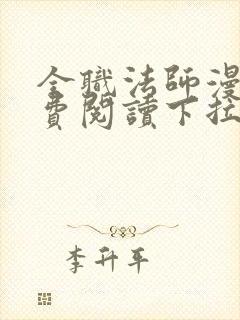 全職法師漫
費閱讀下拉
李升平